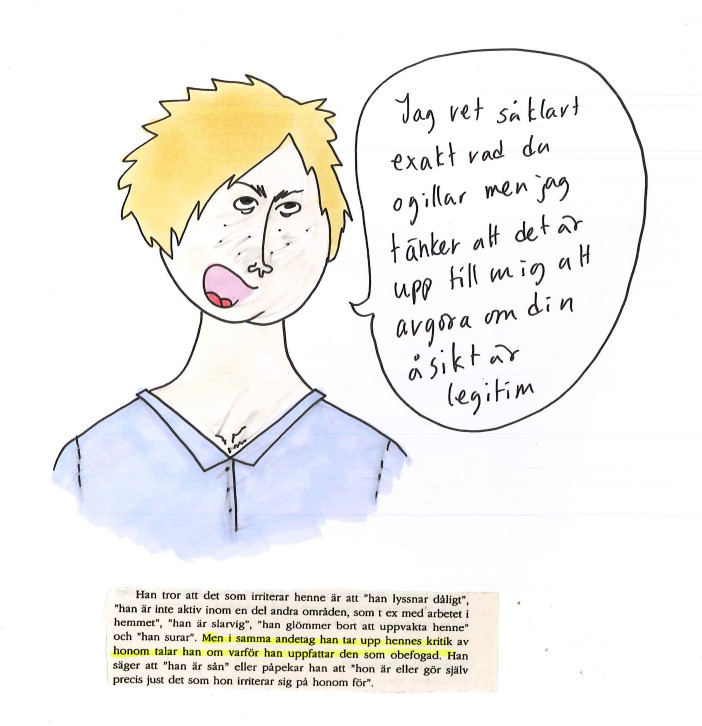 Jag vet såklart
exakt vad du
ogillar men jag
tänker att det är
upp till mig att
avgöra om din
åsikt är
legitim
Han tror att det som irriterar henne är att "han lyssnar dåligt",
"han är inte aktiv inom en del andra områden, som t ex med arbetet i
hemmet", "han är slarvig", "han glömmer bort att uppvakta henne"
och "han surar". Men i samma andetag han tar upp hennes kritik av
honom talar han om varför han uppfattar den som obefogad. Han
säger att "han är sån" eller påpekar han att "hon är eller gör själv
precis just det som hon irriterar sig på honom för".